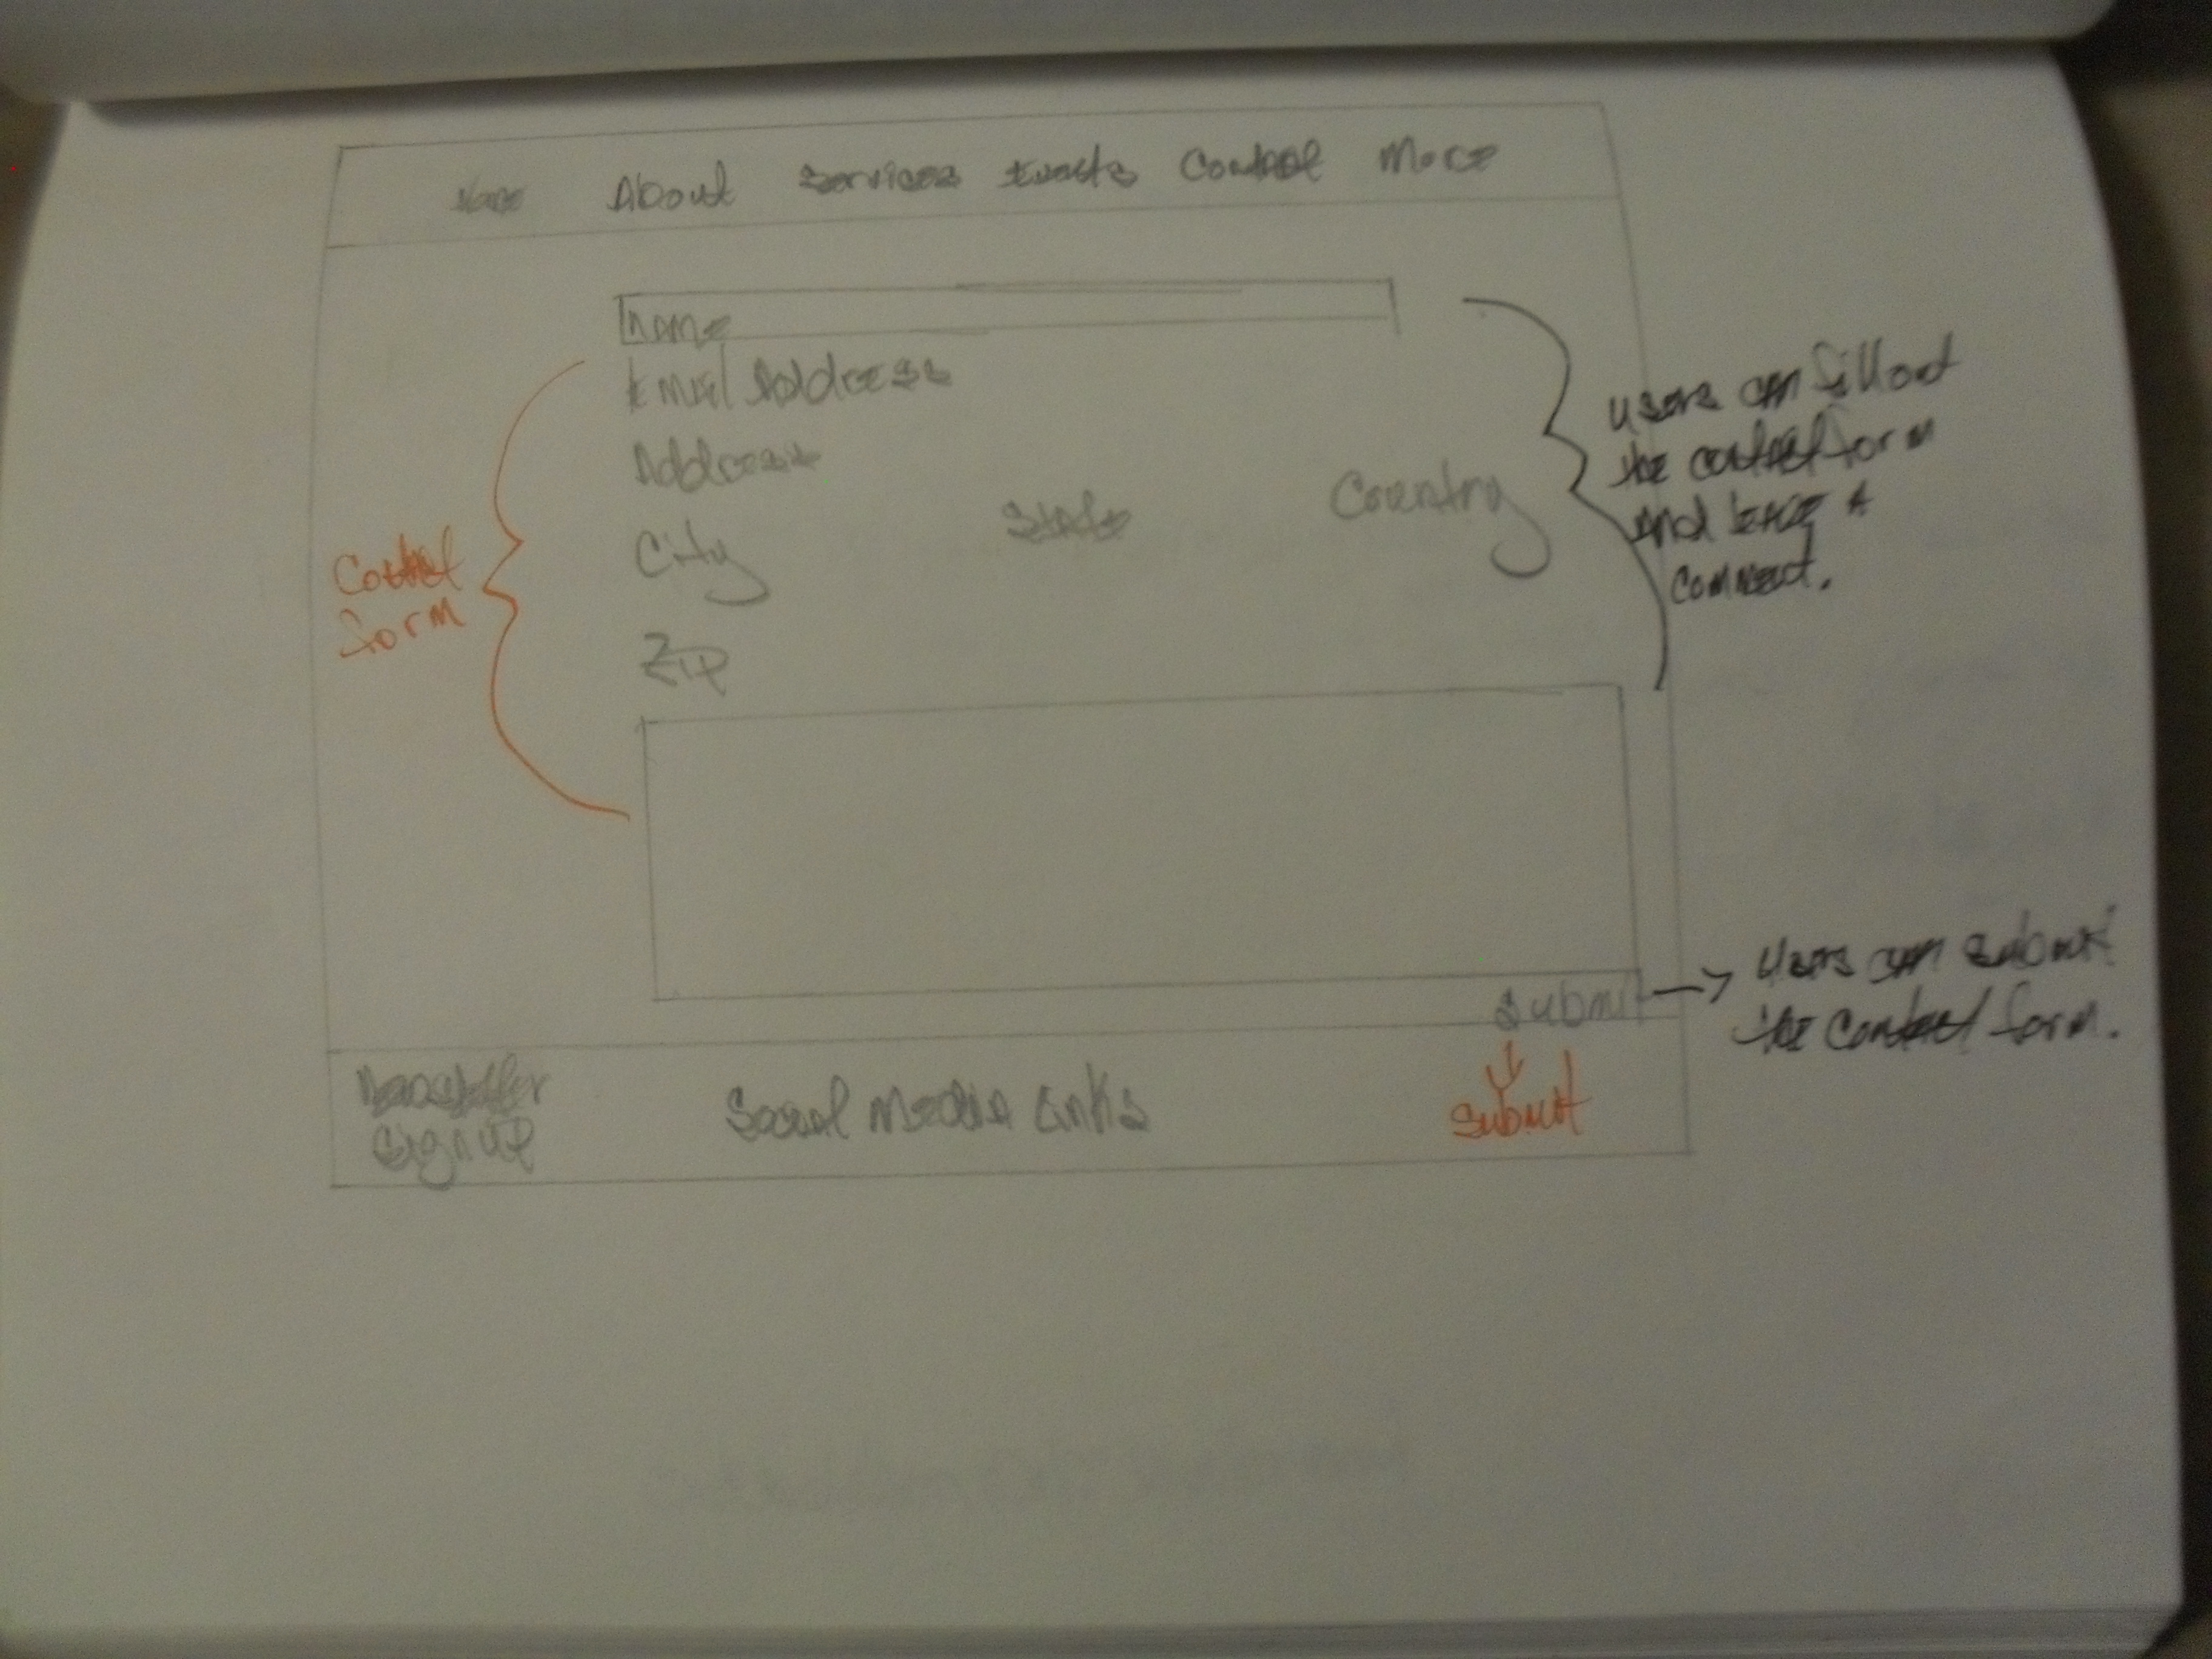 Home About Services Events Contact More
Name
Email Address
Address
City State Country
Zip
Contact
form
Users can fill out
the contact form
and leave a
comment.
Submit
Users can submit
the contact form.
Submit
Newsletter
Sign up
Social Media Links